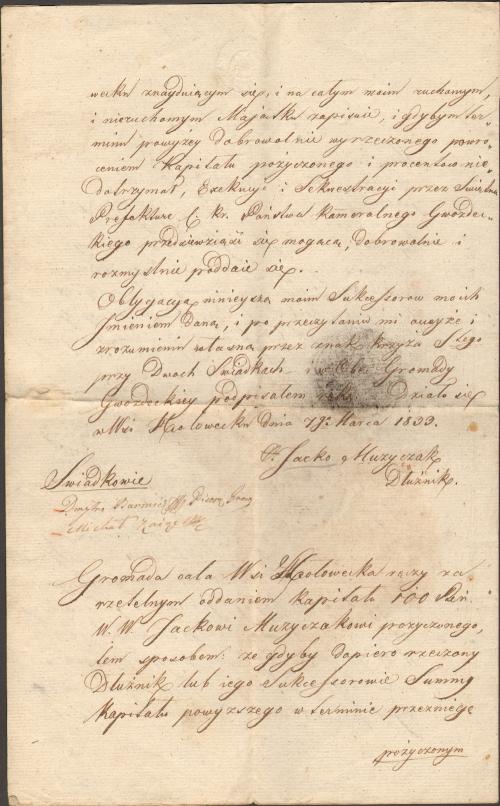 wecku znayduiącym się, i na całym moim ruchomym,
i nieruchomym Majątku zapisuie, i gdybym ter-
minu powyżey dobrowolnie wyrzeczonego powro-
ceniem Kapitału pożyczonego i procentow nie
dotrzymał, Exekucyi i Sekwestracyi przez
Prefekturę C. kr. Państwa Kameralnego Gwozdec-
kiego przedsiewziąść się mogącą, dobrowolnie i
rozmyslnie poddaie się.
Oblygacyą ninieyszą moim Sukcessorow moich
Imieniem daną, i po przeczytaniu mi
zrozumieniu własną przez znak krzyża S tego
przy Dwoch Swiadkach Gromady
Gwozdeckiey podpisałem Działo się
w Wsi dnia 7go Marca 1833.
Jacko Muzyczak
Dłużnik.
Swiadkowie
Dmytro
Michał
Gromada cała Wsi ręczy za
rzetelnym oddaniem Kapitału 100
W. W. Jackowi Muzyczakowi pożyczonego,
tem sposobem: że gdyby dopiero rzeczony
Dłużnik lub iego Sukcessorowie Summy
Kapitału powyzszego w terminie przezniego
pożyczonym